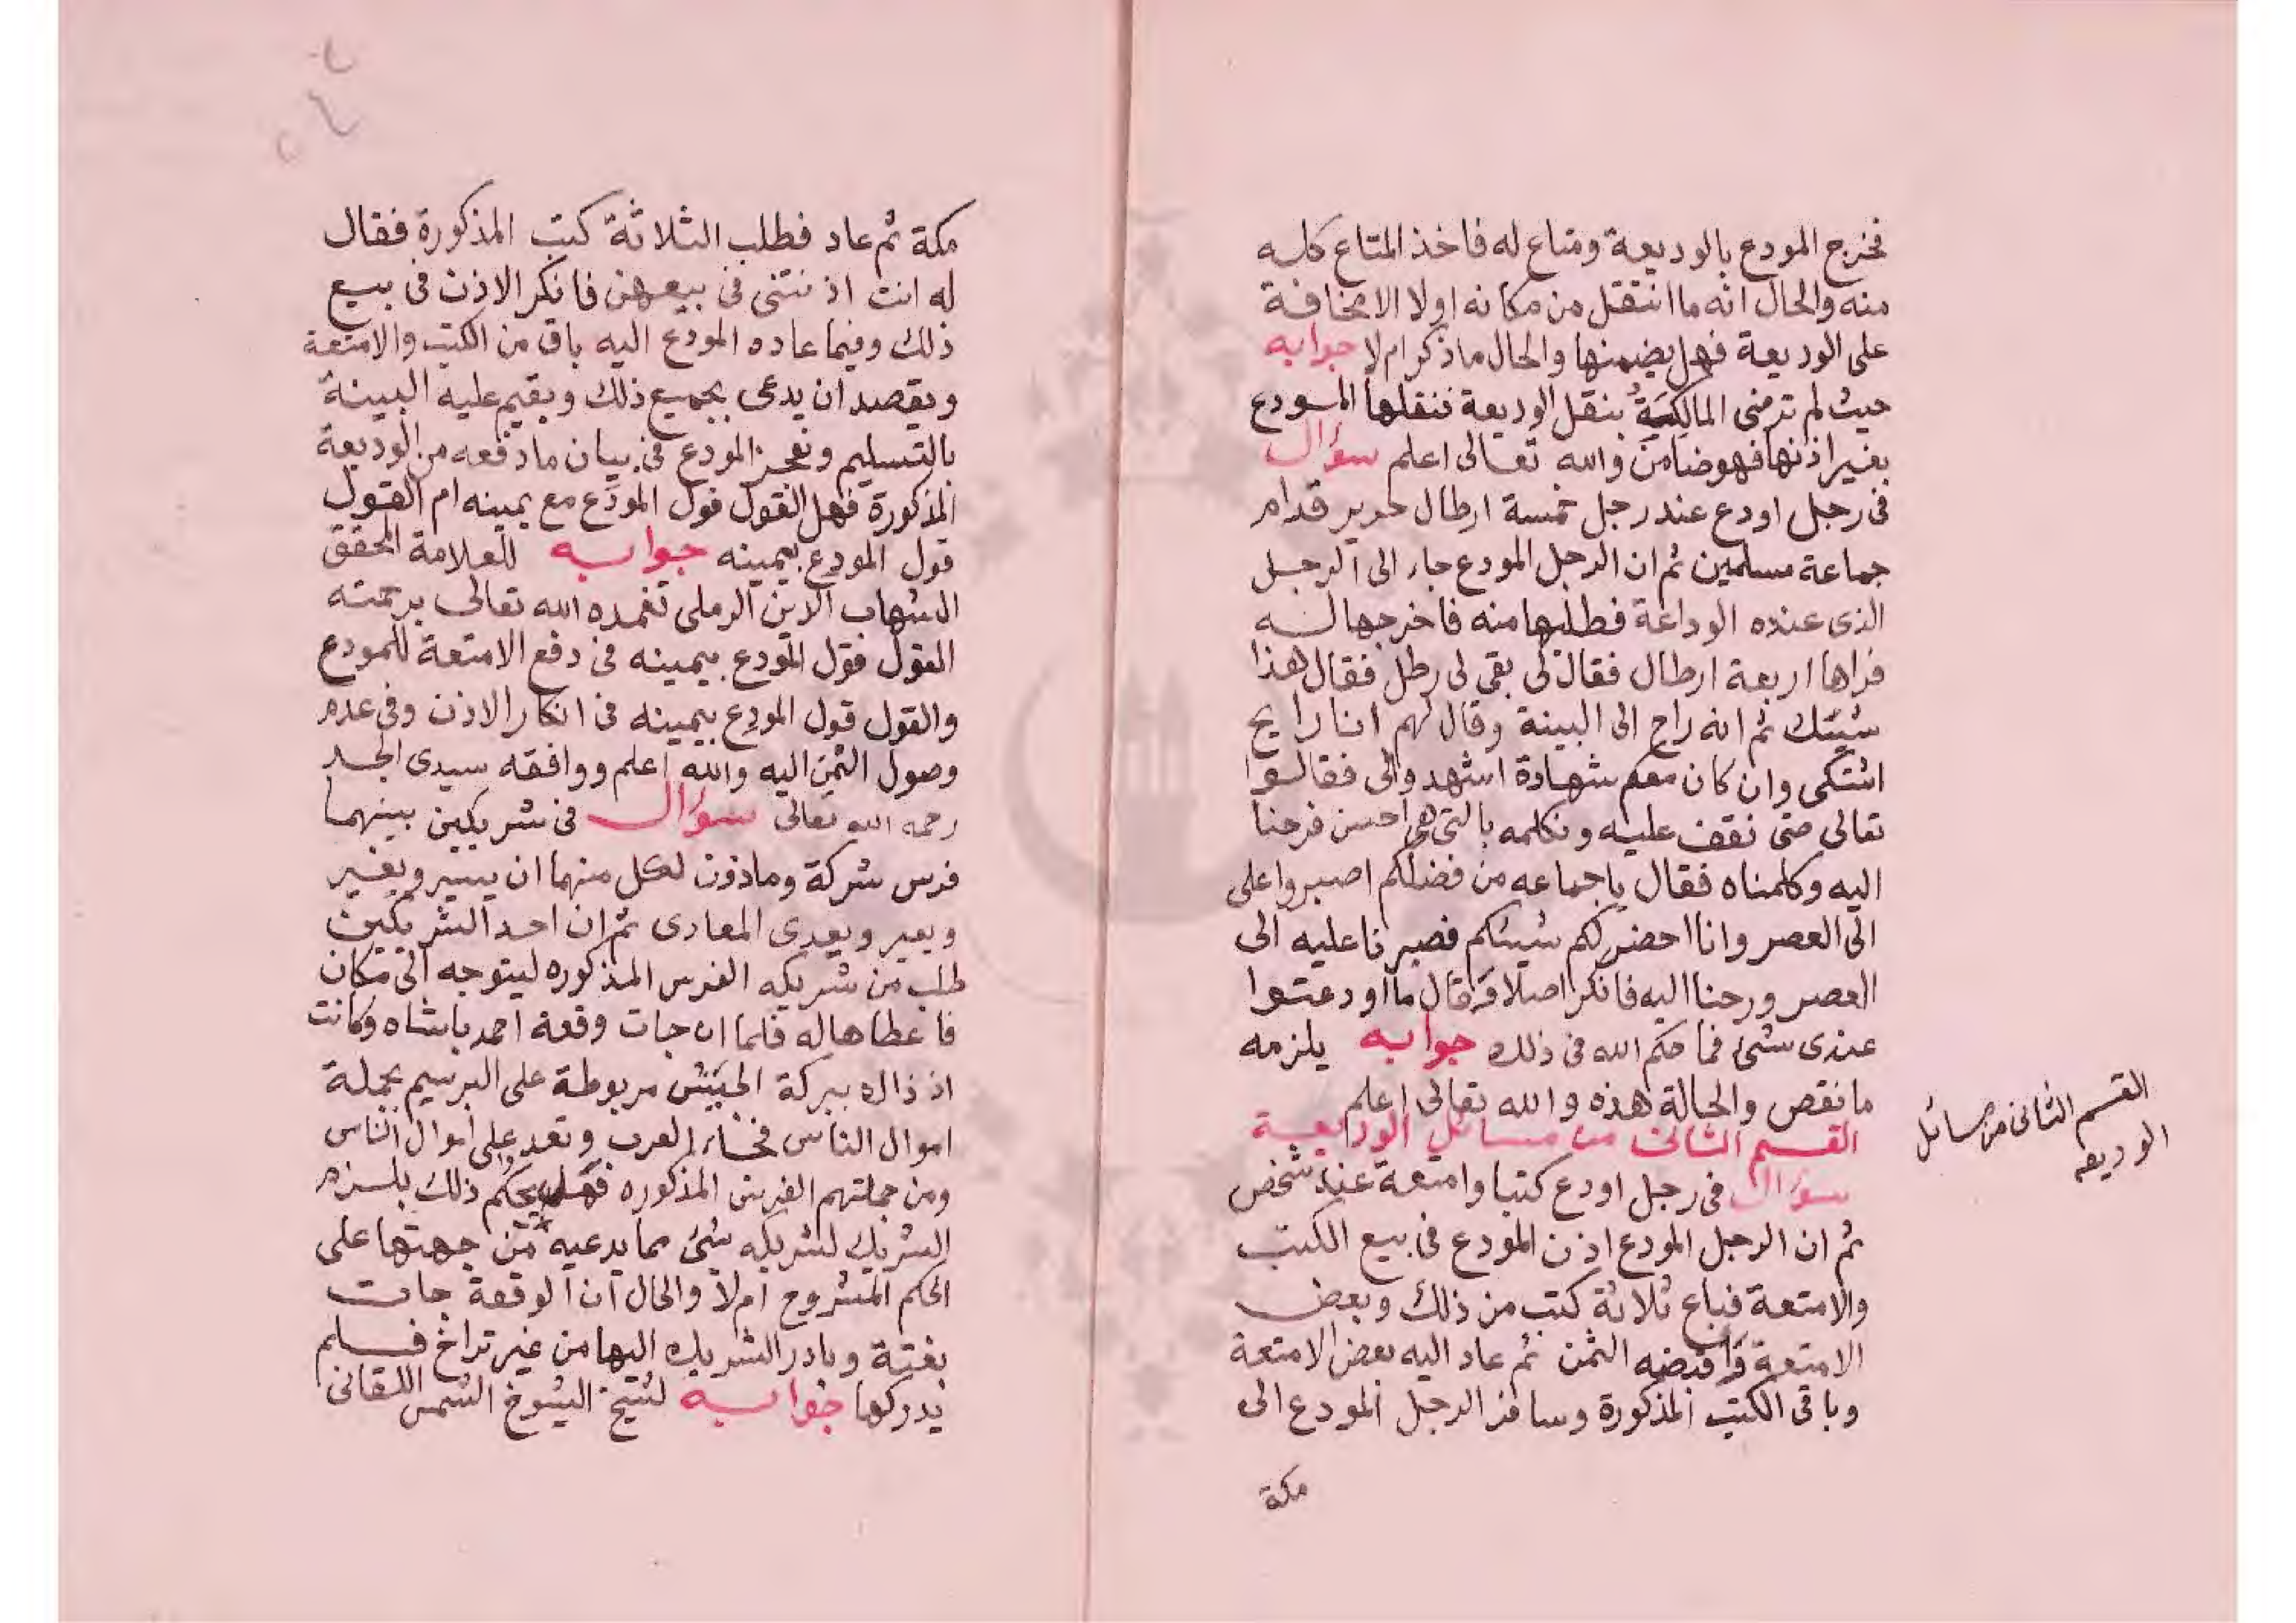 فخرج المودع بالوديعة ومتاع له فاخذ المتاع كله
منه والحال انه ما انتقل من مكانه اولا الا مخافة
على الوديعة فهل يضمنها والحال ماذكر ام لا جوابه
حيث لم ترضى المالكية بنقل الوديعة فنقلها المودع
بغير اذنها فهو ضامن والله تعالى اعلم سؤال
فى رجل اودع عند رجل خمسة ارطال حرير قدام
جماعة مسلمين ثم ان الرجل المودع جاء الى الرجل
الذى عنده الوداعة فطلبها منه فاخرجها له
فراها اربعة ارطال فقال لى بقى لى رطل فقال هذا
شيئك ثم انه راح الى البينة وقال لهم انا رايح
اشتكى وان كان معكم شهادة اشهدوا لى فقالوا
تعالى حتى نقف عليه ونكلمه بالتى هى احسن فرحنا
اليه وكلمناه فقال ياجماعه من فضلكم اصبروا على
الى العصر وانا احضر لكم شيئكم فصبرنا عليه الى
العصر ورحنا اليه فانكر اصلا وقال ما اودعتوا
عندى شئ فما حكم الله فى ذلك جوابه يلزمه
ما نقص والحالة هذه والله تعالى اعلم
القسم الثانى من مسائل الوديعة
القسم الثانى من مسائل
الوديعه
سؤال فى رجل اودع كتبا وامتعة عند شخص
ثم ان الرجل المودع اذن المودع فى بيع الكتب
والامتعة فباع ثلاثة كتب من ذلك وبعض
الامتعة واقبضه الثمن ثم عاد اليه بعض الامتعة
وباقى الكتب المذكورة وسافر الرجل المودع الى
مكة
مكة ثم عاد فطلب الثلاثة كتب المذكورة فقال
له انت اذنتنى فى بيعهن فانكر الاذن فى بيع
ذلك وفيما عاده المودع اليه باق من الكتب والامتعة
ويقصد ان يدعى بجميع ذلك ويقيم عليه البينة
بالتسليم ونعجز المودع فى بيان مادفعه من الوديعة
المذكورة فهل القول قول المودَع مع يمينه ام القول
قول المودِع بيمينه جوابه للعلامة المحقق
الشهاب الدين الرملى تغمده الله تعالى برحمته
القول قول المودع بيمينه فى دفع الامتعة للمودع
والقول قول المودِع بيمينه فى انكار الاذن وفى عدم
وصول الثمن اليه والله اعلم ووافقه سيدى الجد
رحمه الله تعالى سؤال فى شريكين بينهما
فرس شركة وماذون لكل منهما ان يسير ويغير
ويعير ويعدى المعادى ثم ان احد الشريكين
طلب من شريكه الفرس المذكوره ليتوجه الى مكان
فاعطاها له فلما ان جات وقعة احمد باشاه وكانت
اذ ذاك ببركة الحبش مربوطة على البرسيم بجملة
اموال الناس فجاء العرب وتعد على اموال الناس
ومن جملتهم الفرس المذكوره فهل بحكم ذلك يلزم
الشريك لشريكه شئ مما يدعيه من جهتها على
الحكم المشروح ام لا والحال ان الوقعة جات
بغتة وبادر الشريك اليها من غير تراخ فلم
يدركها جوابه لشيخ الشيوخ الشمس اللقانى